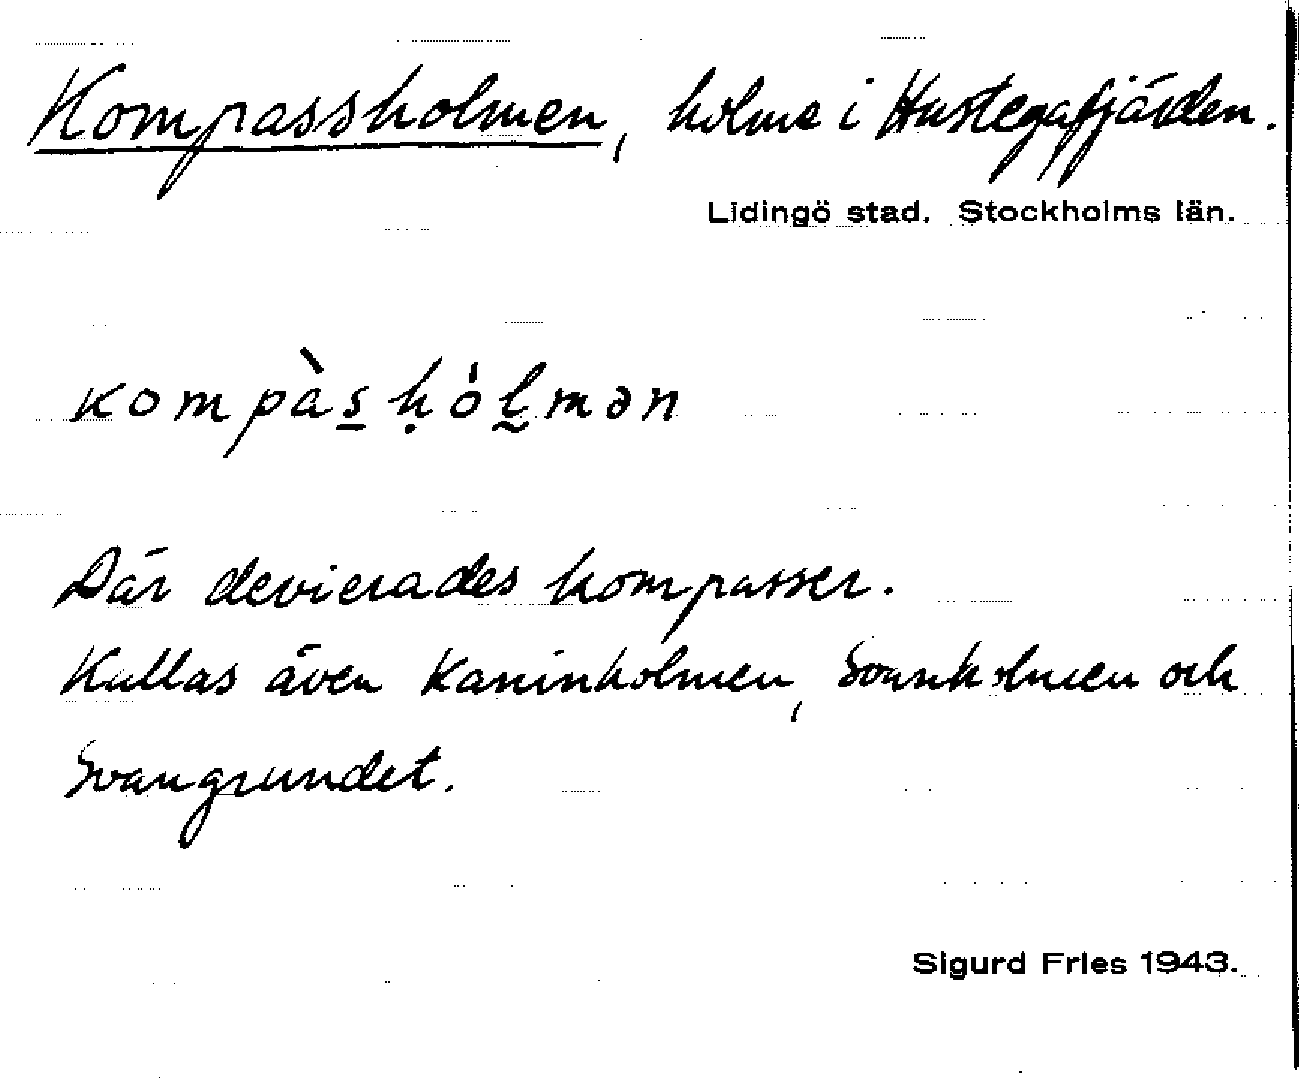 Kompassholmen, holme i Hustegafjärden.
Lidingö stad. Stockholms län.
kompàs̲ ḥól̰mən
Där devierades kompasser.
Kallas även Kaninholmen, Svanholmen och
Svangrundet.
Sigurd Fries 1943.